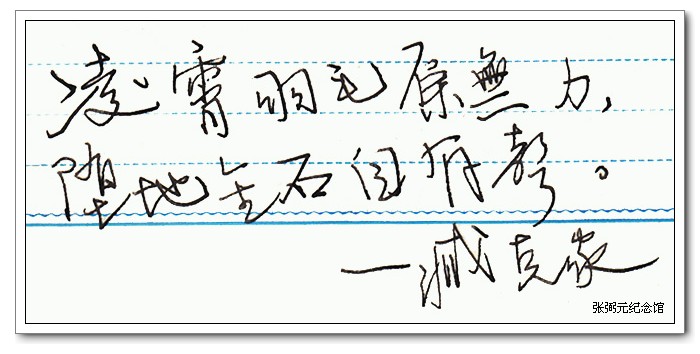 凌霄羽毛原無力，
堕地金石自有聲。
—臧克家
张弼元纪念馆